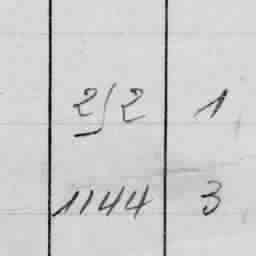 252 1
1144 3